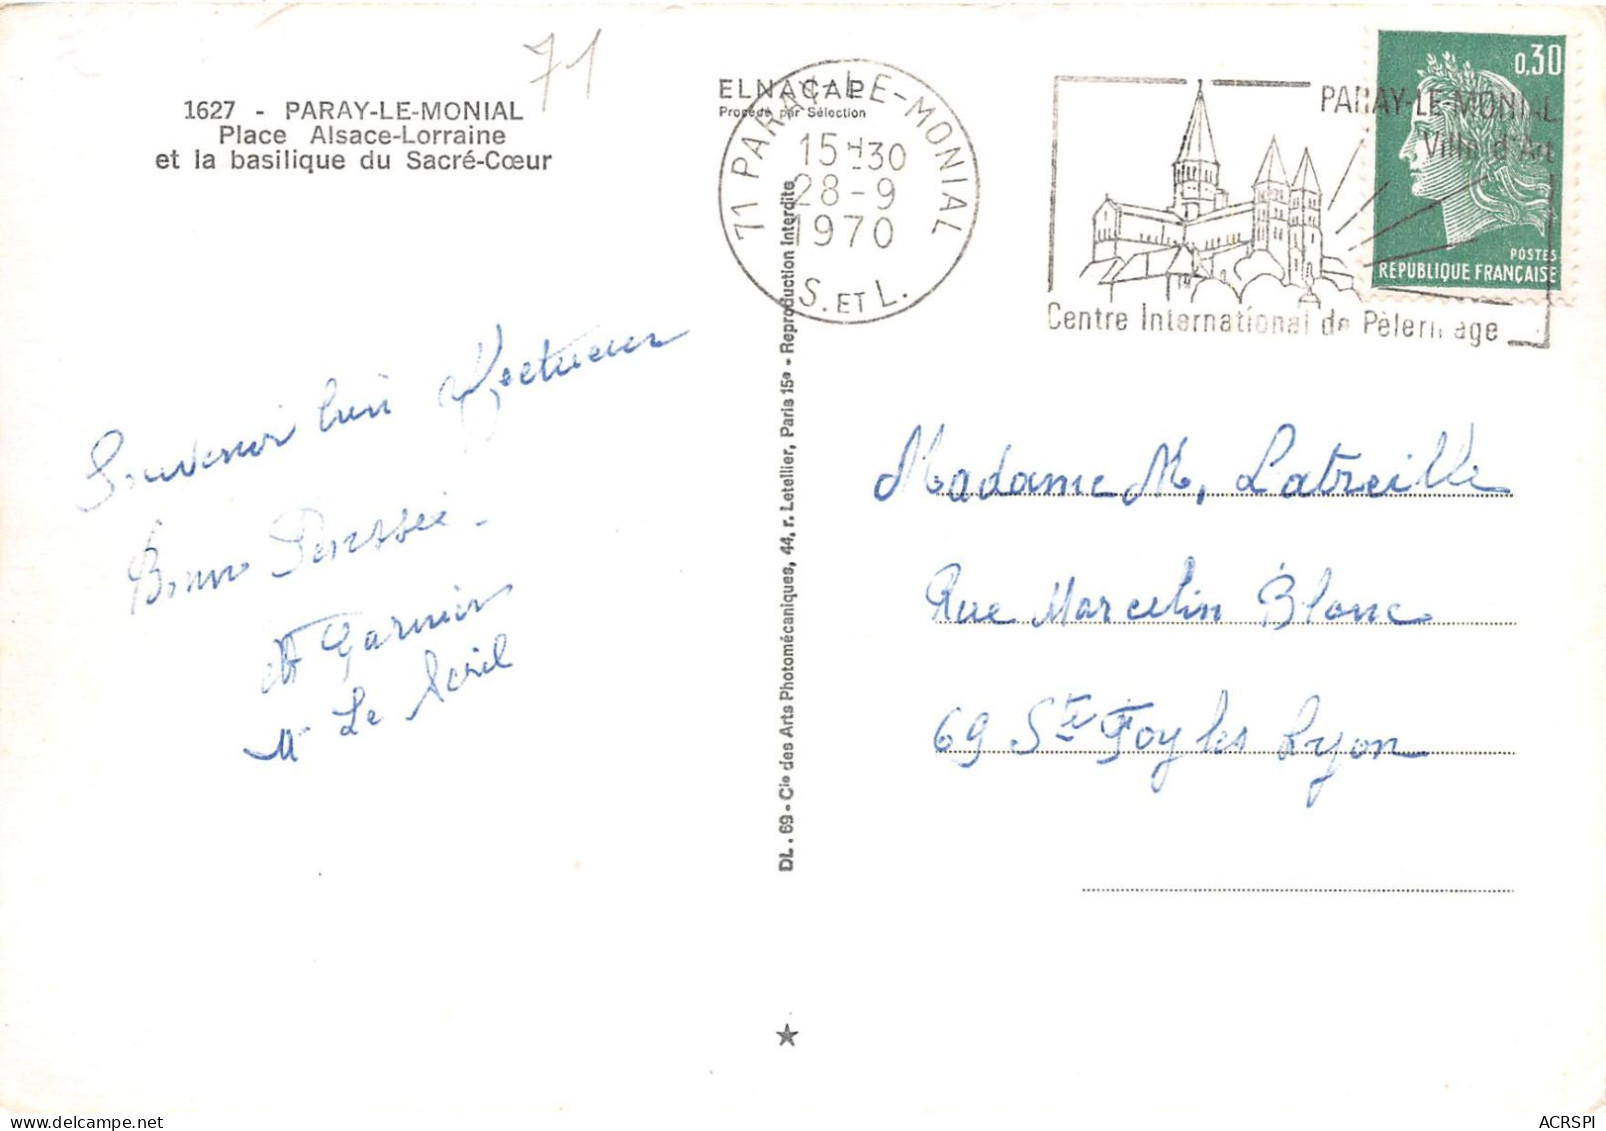 71
1627 - PARAY-LE-MONIAL
Place Alsace-Lorraine
et la basilique du Sacré-Cœur
ELNACAP
Procédé par Sélection
71 PARAY-LE-MONIAL
15H30
28-9
1970
S. ET L.
PARAY-LE-MONIAL
Ville d'Art
Centre International de Pèlerinage
0,30
POSTES
REPUBLIQUE FRANÇAISE
Souvenir bien
Garnier
M Le
DL. 69 - Cie des Arts Photomécaniques, 44, r. Letellier, Paris 15e - Reproduction Interdite
Madame M, Latreille
Rue Marcelin Blanc
69 Ste Foy les Lyon
ACRSPI